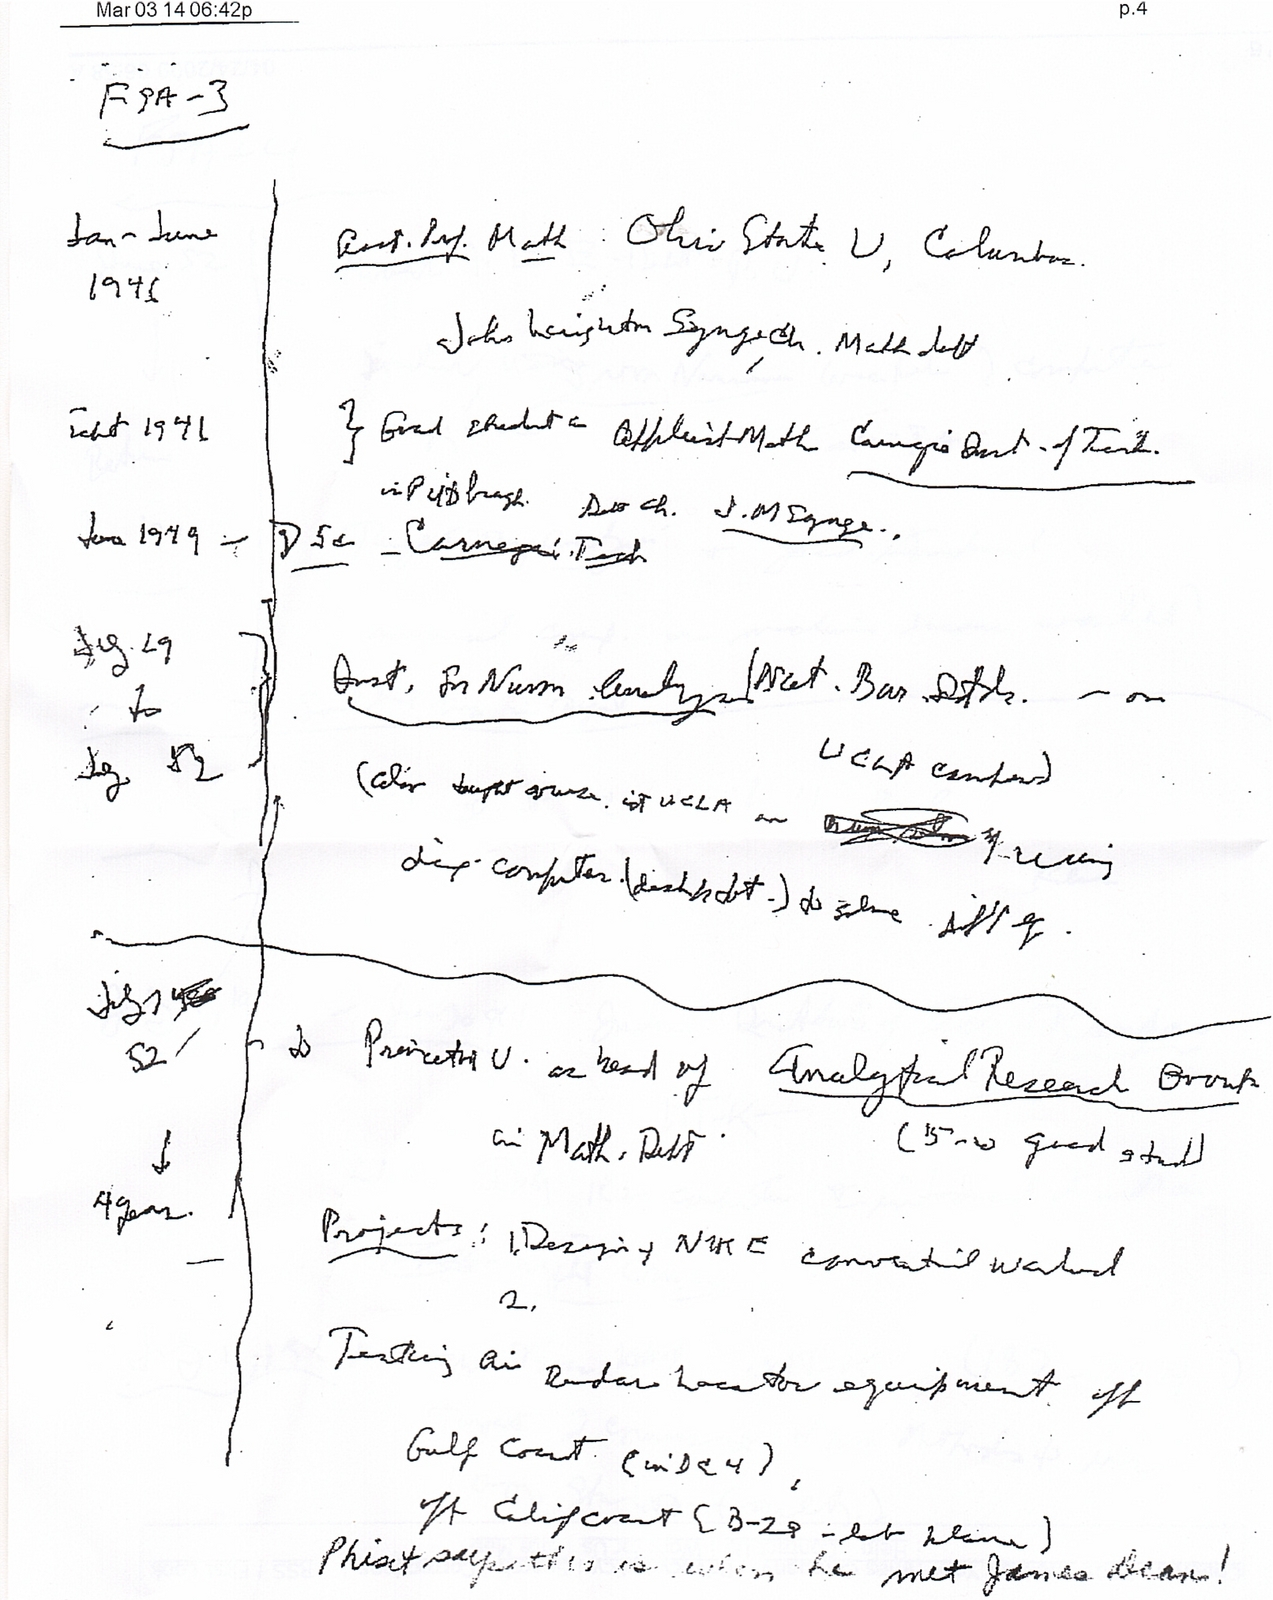 Mar 03 14 06:42p
p.4
F9A-3
Jan - June
1946
Asst. Prof. Math : Ohio State U, Columbus.
John Leighton Synge, Ch. Math dept
Sept 1946
} Grad student in Applied Math Carnegie Inst. of Tech.
in Pittsburgh. Ch. Synge.
June 1949 - DSc - Carnegie Tech
49
to
52
Inst. for Num. Analysis / Nat. Bur. Stds. - on
UCLA campus)
(also taught course at UCLA on
computer to solve diff eq.
52
to Princeton U. as head of Analytical Research Group
in Math. Dept.
grad stud)
4 years.
Projects: 1) Design of NIKE warhead
2.
Testing air radar locator equipment off
Gulf Coast (in DC4),
off Calif coast (B-29 - plane)
says this is when he met James Dean!